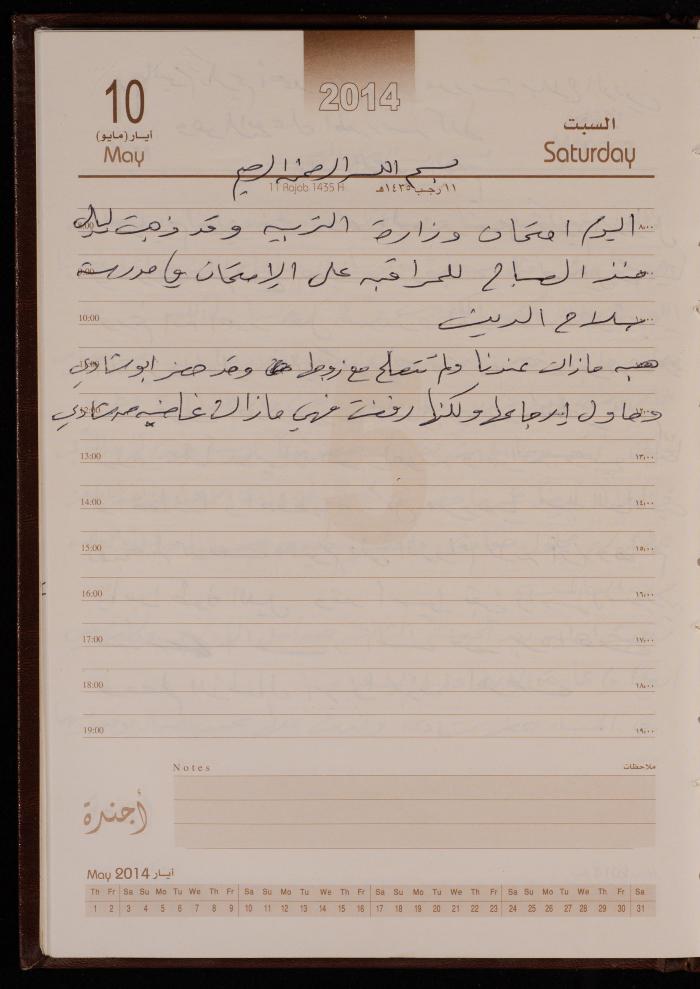 2014
10
أيار (مايو)
May
السبت
Saturday
بسم الله الرحمن الرحيم
11 Rajab 1435 H
١١ رجب ١٤٣٥هـ
اليوم امتحان وزارة التربيه وقد ذهبت
منذ الصباح للمراقبه على الإمتحان في مدرسة
صلاح الدين
هبه مازالت عندنا ولم تتصلح مع زوجها وقد حضر ابو شادي
وحاول إرجاعها ولكنها رفضت فهي مازالت غاضبه من شادي
8:00 ٨:٠٠
9:00 ٩:٠٠
10:00 ١٠:٠٠
11:00 ١١:٠٠
12:00 ١٢:٠٠
13:00 ١٣:٠٠
14:00 ١٤:٠٠
15:00 ١٥:٠٠
16:00 ١٦:٠٠
17:00 ١٧:٠٠
18:00 ١٨:٠٠
19:00 ١٩:٠٠
Notes ملاحظات
أجندة
May 2014 أيار
Th Fr Sa Su Mo Tu We Th Fr Sa Su Mo Tu We Th Fr Sa Su Mo Tu We Th Fr Sa Su Mo Tu We Th Fr Sa
1 2 3 4 5 6 7 8 9 10 11 12 13 14 15 16 17 18 19 20 21 22 23 24 25 26 27 28 29 30 31